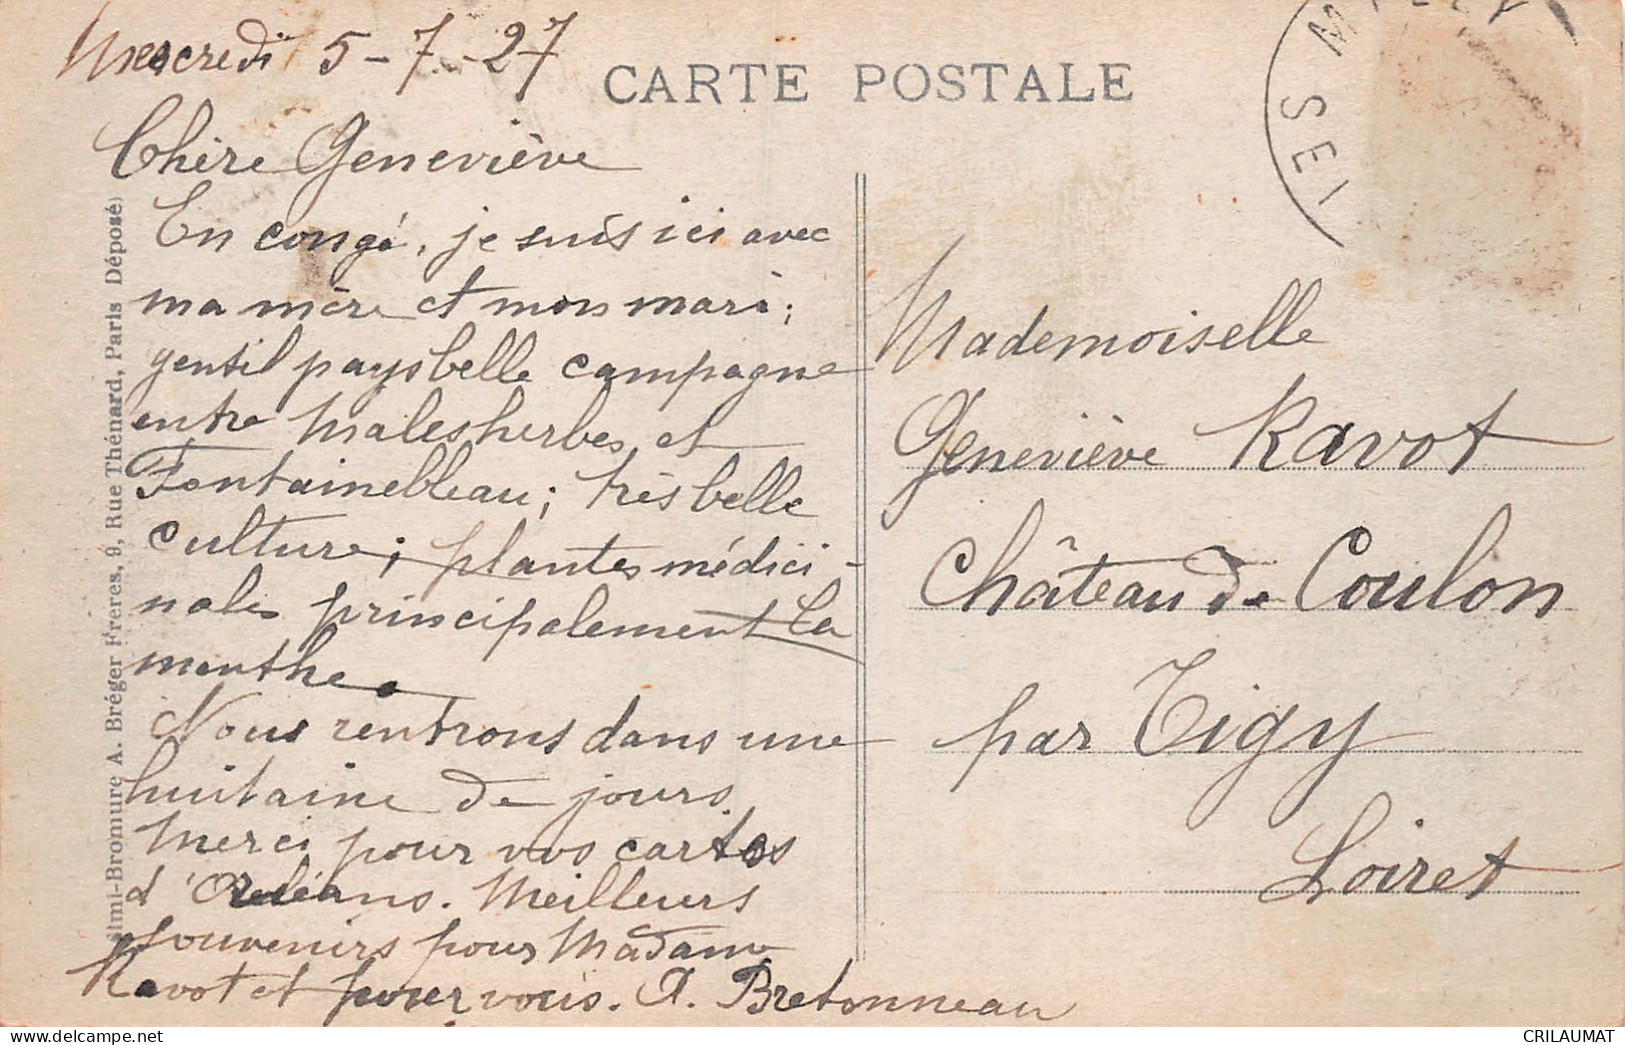 Mercredi 5-7-27
CARTE POSTALE
Chère Geneviève
En congé, je suis ici avec
ma mère et mon mari;
gentil pays belle campagne
entre Malesherbes et
Fontainebleau; très belle
culture; plantes médici-
nales principalement la
menthe.
Nous rentrons dans une
huitaine de jours.
Merci pour vos cartes
d'Orléans. Meilleurs
souvenirs pour Madame
Ravot et pour vous. A. Bretonneau
Mademoiselle
Geneviève Ravot
Château de Coulon
par Tigy
Loiret
MILLY
SEI
-Bromure A. Bréger Frères, 9, Rue Thénard, Paris Déposé)
CRILAUMAT